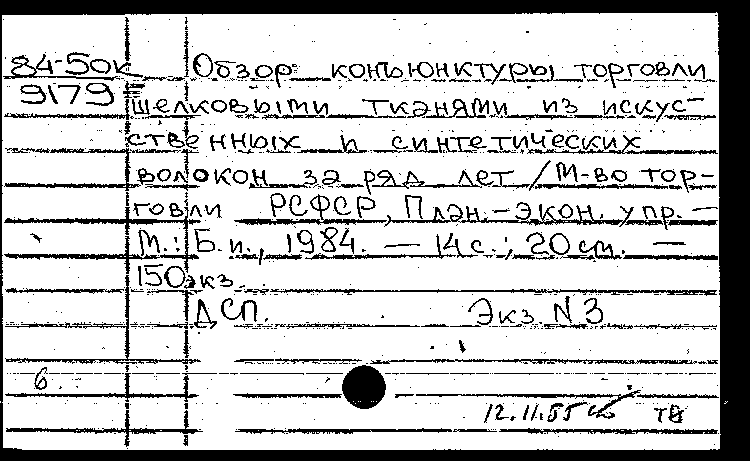 84-50к Обзор конъюнктуры торговли
9179 шелковыми тканями из искус-
ственных и синтетических
волокон за ряд лет / М-во тор-
говли РСФСР, План.-экон. упр. —
М.: Б.и., 1984. — 14 с.; 20 см. —
150 экз.
ДСП. Экз N 3
6.
12.11.85